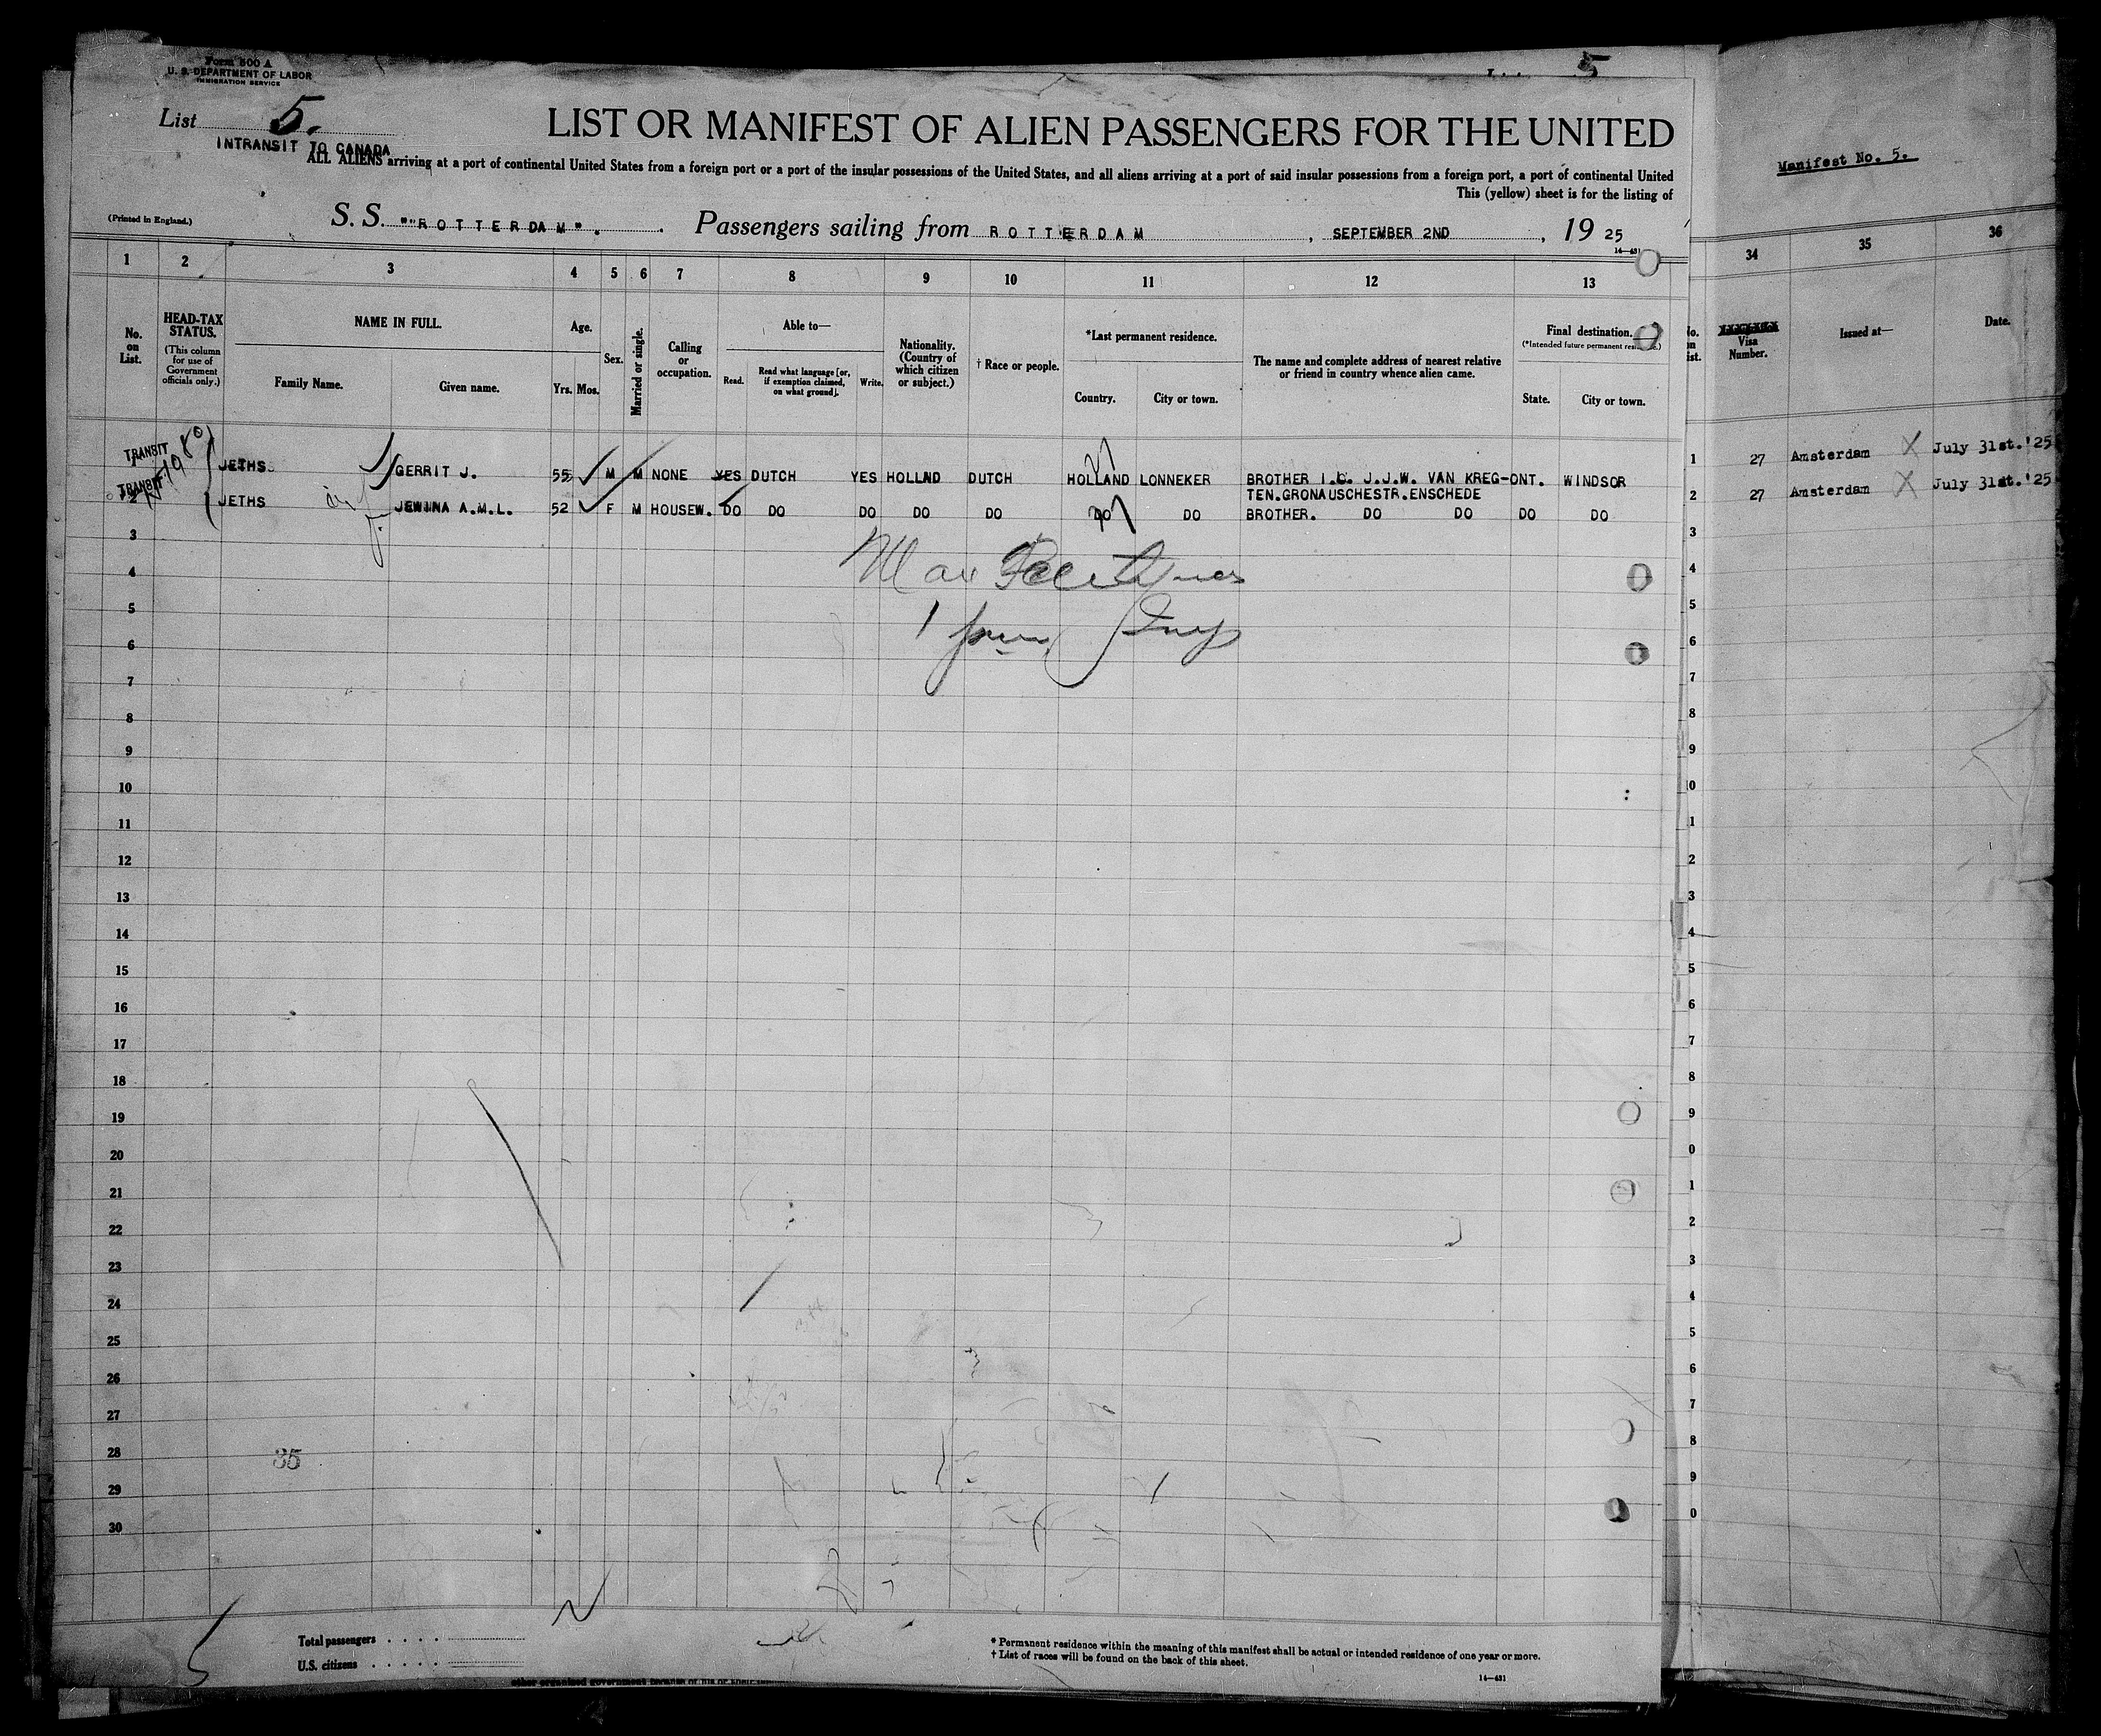 Form 500 A
U. S. DEPARTMENT OF LABOR
IMMIGRATION SERVICE
5
List 5.
INTRANSIT TO CANADA
LIST OR MANIFEST OF ALIEN PASSENGERS FOR THE UNITED
ALL ALIENS arriving at a port of continental United States from a foreign port or a port of the insular possessions of the United States, and all aliens arriving at a port of said insular possessions from a foreign port, a port of continental United
This (yellow) sheet is for the listing of
(Printed in England.)
S. S. "ROTTERDAM". Passengers sailing from ROTTERDAM, SEPTEMBER 2ND, 19 25
14-431
Manifest No. 5.
1 2 3 4 5 6 7 8 9 10 11 12 13 34 35 36
No. on List.
HEAD-TAX STATUS.
(This column for use of Government officials only.)
NAME IN FULL.
Family Name. Given name.
Age.
Yrs. Mos.
Sex.
Married or single.
Calling or occupation.
Able to—
Read. Read what language [or, if exemption claimed, on what ground]. Write.
Nationality. (Country of which citizen or subject.)
† Race or people.
*Last permanent residence.
Country. City or town.
The name and complete address of nearest relative or friend in country whence alien came.
Final destination.
(*Intended future permanent
State. City or town.
Visa Number.
Issued at—
Date.
TRANSIT JETHS GERRIT J. 55 M M NONE YES DUTCH YES HOLLND DUTCH HOLLAND LONNEKER BROTHER I.L. J.J.W. VAN KREG-ONT. WINDSOR
TEN.GRONAUSCHESTR.ENSCHEDE
TRANSIT 2 JETHS JEWINA A.M.L. 52 F M HOUSEW. DO DO DO DO DO DO DO BROTHER. DO DO DO DO
1 27 Amsterdam X July 31st.'25
2 27 Amsterdam X July 31st.'25
3
4
5
6
7
8
9
10
11
12
13
14
15
16
17
18
19
20
21
22
23
24
25
26
27
28
35
29
30
Total passengers . . . .
U.S. citizens . . . . .
* Permanent residence within the meaning of this manifest shall be actual or intended residence of one year or more.
† List of races will be found on the back of this sheet.
14-431